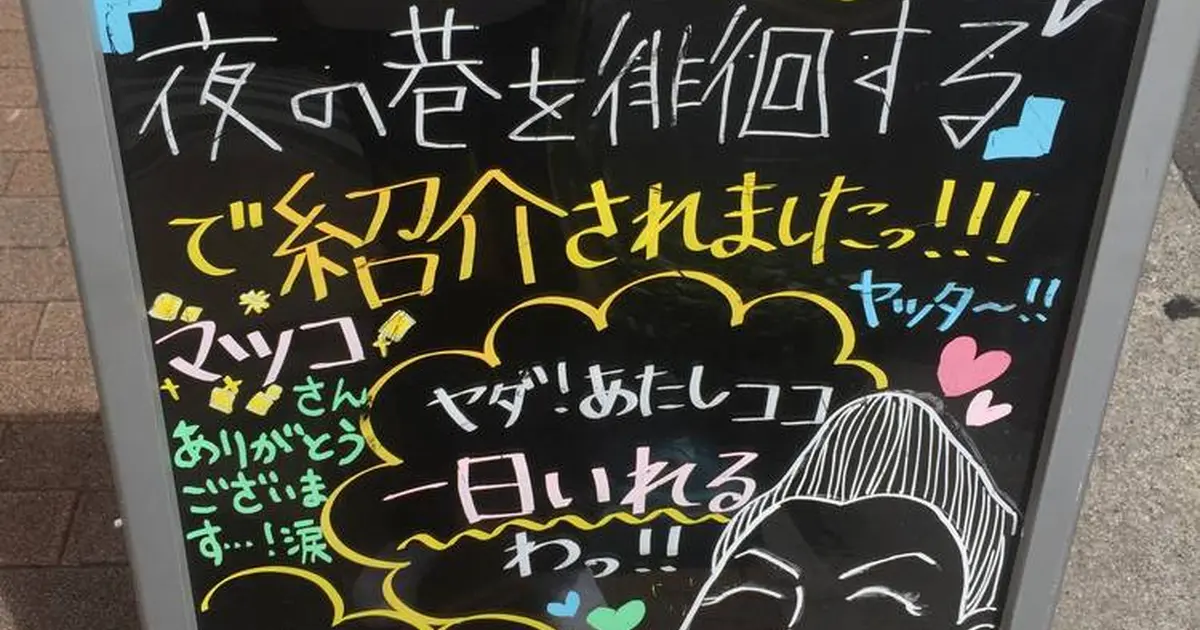 夜の巷を徘徊する
で紹介されましたっ!!!
ヤッタ〜!!
マツコ
さん
ありがとう
ございま
す…!涙
ヤダ!あたしココ
一日いれる
わっ!!